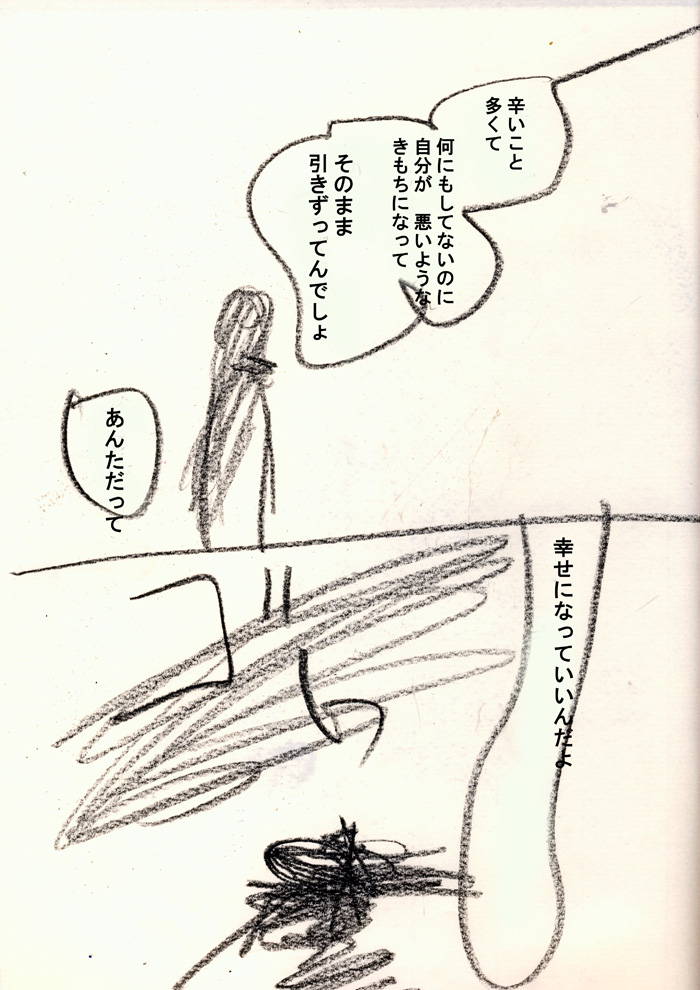 辛いこと
多くて
何にもしてないのに
自分が 悪いような
きもちになって
そのまま
引きずってんでしょ
あんただって
幸せになっていいんだよ